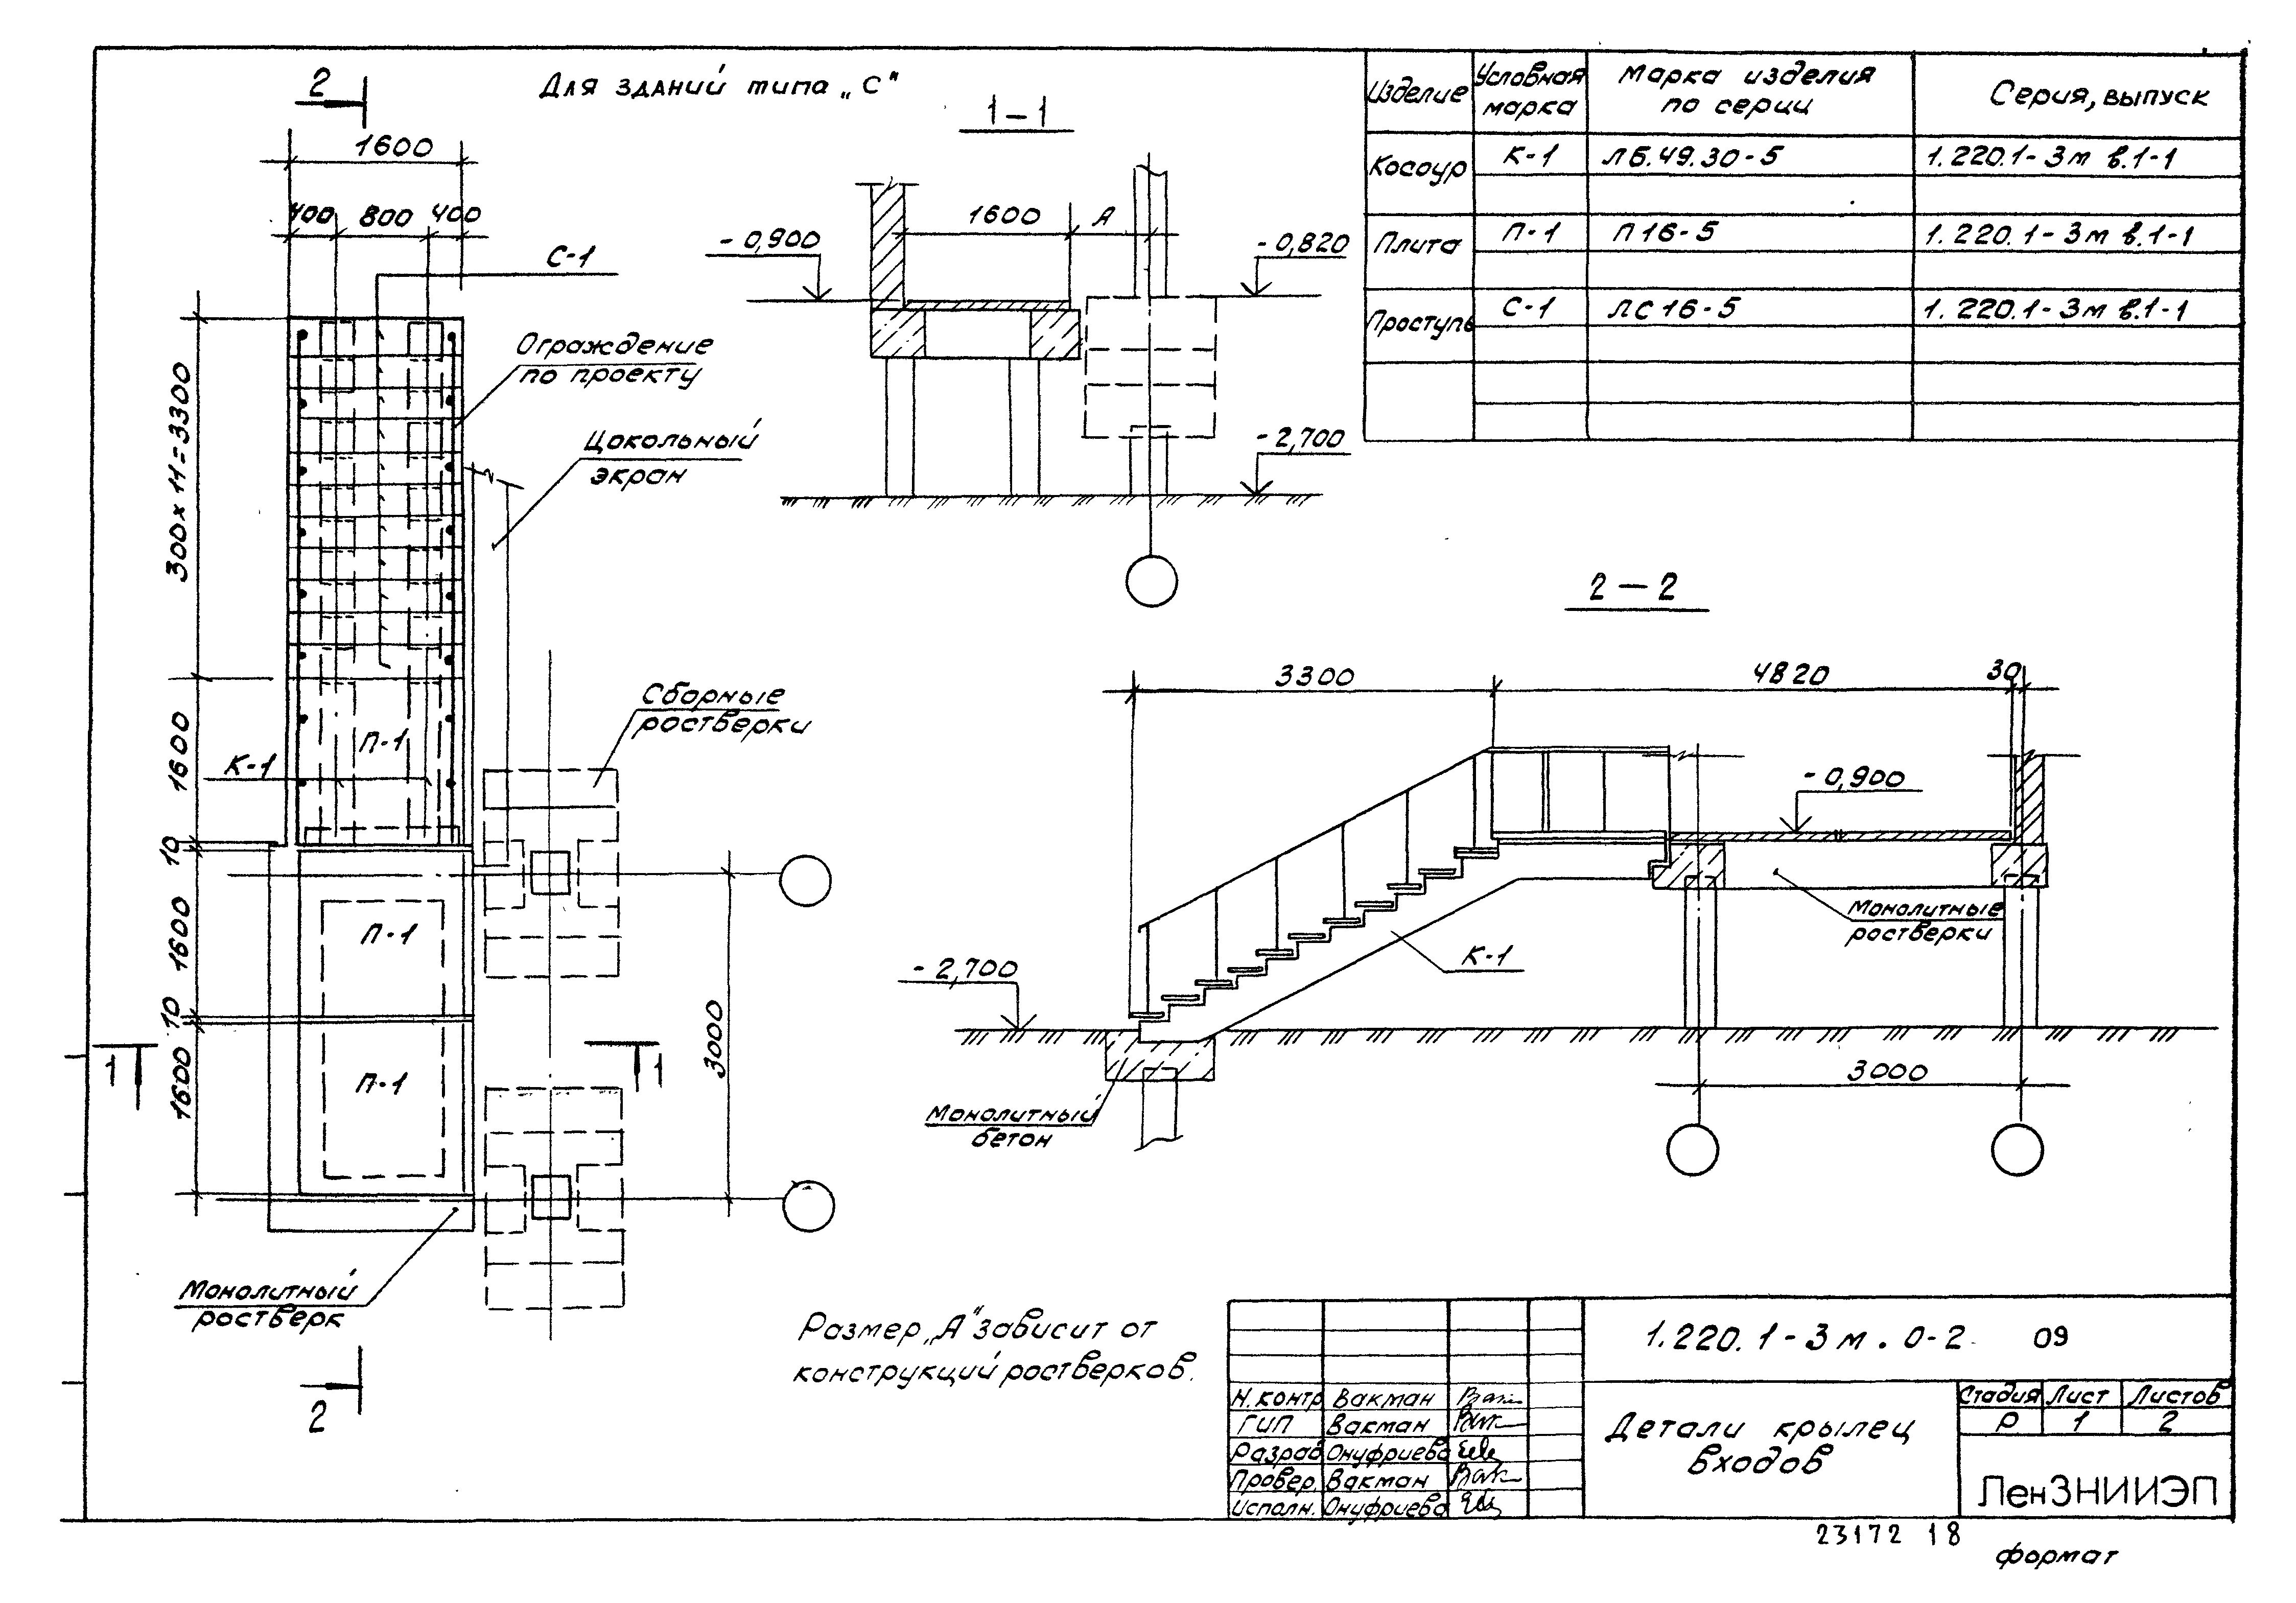 Для зданий типа „С"
2
1600
400 800 400
С-1
Ограждение
по проекту
Цокольный
экран
300×11=3300
Сборные
ростверки
П-1
К-1
1600
10
П-1
1600
10
П-1
1600
1 1
3000
Монолитный
ростверк
2
1-1
1600 А
-0,900
-0,820
-2,700
Изделие Условная марка Марка изделия по серии Серия, выпуск
Косоур К-1 ЛБ.49.30-5 1.220.1-3м в.1-1
Плита П-1 П16-5 1.220.1-3м в.1-1
Проступь С-1 ЛС16-5 1.220.1-3м в.1-1
2-2
3300 4820 30
-0,900
Монолитные
ростверки
К-1
-2,700
3000
Монолитный
бетон
Размер „А" зависит от
конструкций ростверков.
1.220.1-3м.0-2 09
Н.контр Вакман
ГИП Вакман
Разраб Онуфриева
Провер. Вакман
Исполн. Онуфриева
Детали крылец
входов
Стадия Лист Листов
Р 1 2
ЛенЗНИИЭП
23172 18
формат